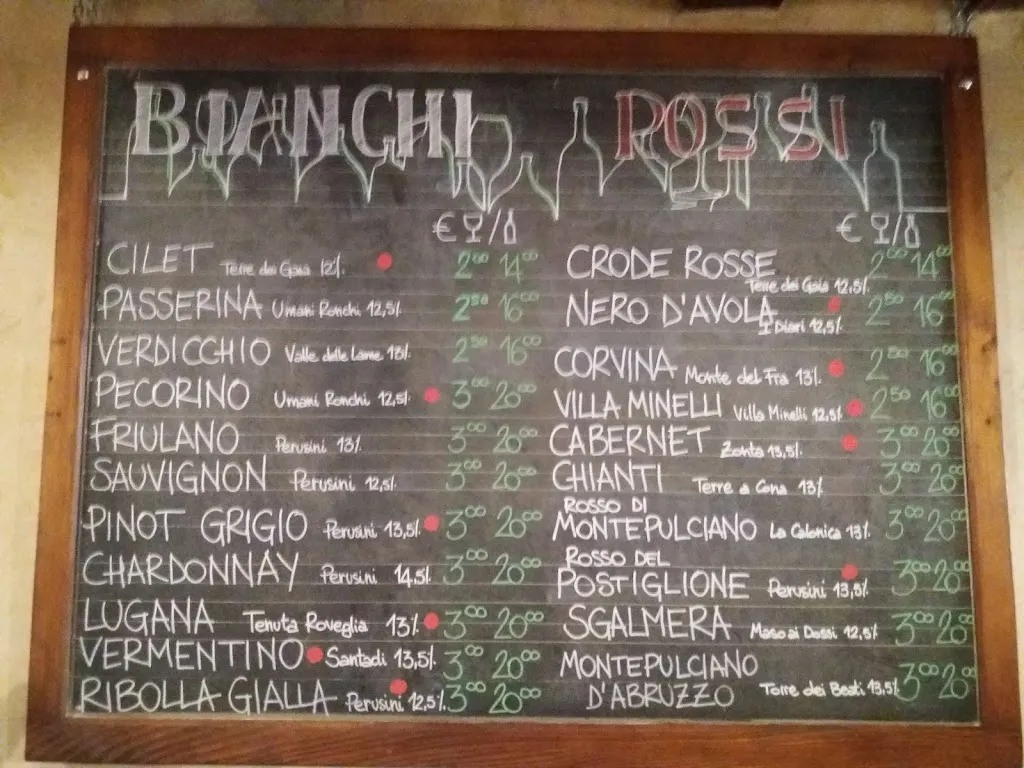 BIANCHI
€ /
CILET Terre dei Gaia 12%. 2⁰⁰ 14⁰⁰
PASSERINA Umani Ronchi 12,5% 2⁵⁰ 16⁰⁰
VERDICCHIO Valle delle Lame 13% 2⁵⁰ 16⁰⁰
PECORINO Umani Ronchi 12,5% 3⁰⁰ 20⁰⁰
FRIULANO Perusini 13% 3⁰⁰ 20⁰⁰
SAUVIGNON Perusini 12,5% 3⁰⁰ 20⁰⁰
PINOT GRIGIO Perusini 13,5% 3⁰⁰ 20⁰⁰
CHARDONNAY Perusini 14,5% 3⁰⁰ 20⁰⁰
LUGANA Tenuta Roveglia 13% 3⁰⁰ 20⁰⁰
VERMENTINO Santadi 13,5% 3⁰⁰ 20⁰⁰
RIBOLLA GIALLA Perusini 12,5% 3⁰⁰ 20⁰⁰
ROSSI
€ /
CRODE ROSSE 2⁰⁰ 14⁰⁰
Terre dei Gaia 12,5%
NERO D'AVOLA 2⁵⁰ 16⁰⁰
I Diari 12,5%
CORVINA Monte del Fra 13% 2⁵⁰ 16⁰⁰
VILLA MINELLI Villa Minelli 12,5% 2⁵⁰ 16⁰⁰
CABERNET Zonta 13,5% 3⁰⁰ 20⁰⁰
CHIANTI Terre a Cona 13% 3⁰⁰ 20⁰⁰
ROSSO DI
MONTEPULCIANO La Calonica 13% 3⁰⁰ 20⁰⁰
ROSSO DEL
POSTIGLIONE Perusini 13,5% 3⁰⁰ 20⁰⁰
SGALMERA Maso ai Dossi 12,5% 3⁰⁰ 20⁰⁰
MONTEPULCIANO
D'ABRUZZO Torre dei Beati 13,5% 3⁰⁰ 20⁰⁰